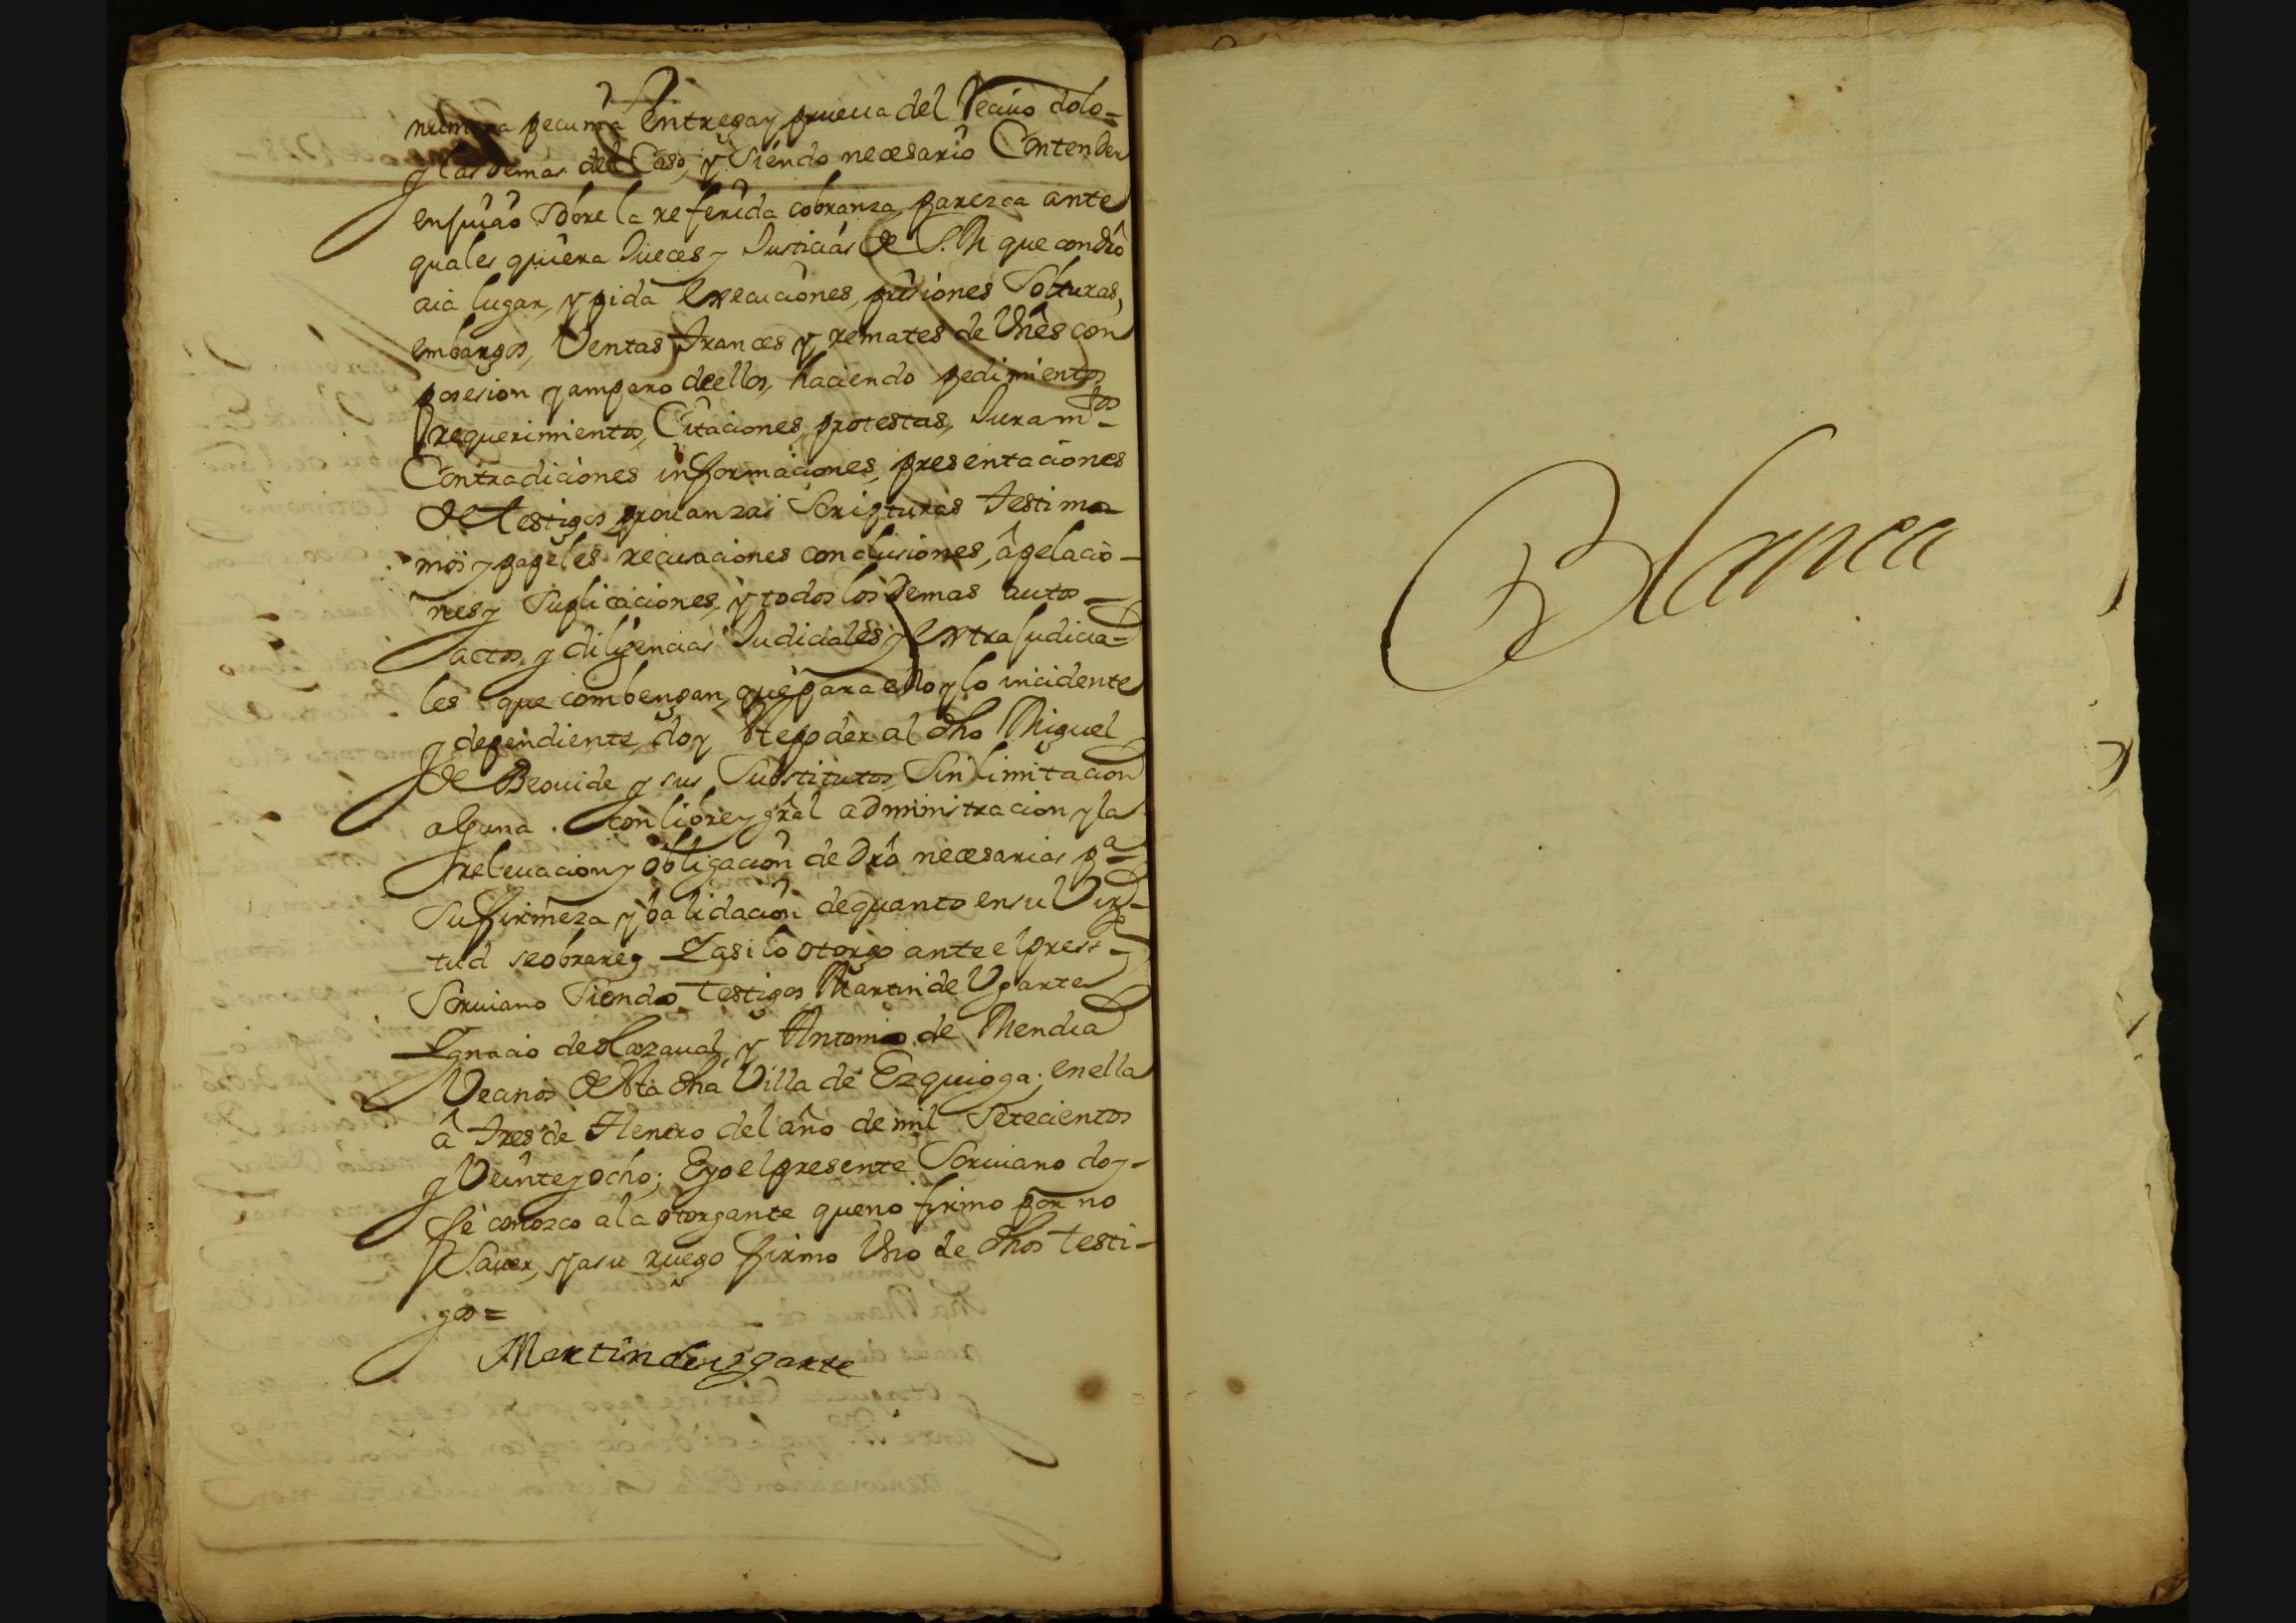 numera pecunia Entrega y prueua del Reciuo dolo=
y las demas del Caso, y Siendo necesario Contender
en juicio Sobre la referida cobranza, parezca ante
quales quiera Jueces y Justicias de S. M que con dro
aia lugar, y pida Execuciones, prisiones Solturas,
embargos, Ventas trances y remates de Vnes con
posesion y amparo de ellos, haciendo pedimientos
requerimientos, Citaciones, protestas, Juramtos-
Contradiciones informaciones, presentaciones
de testigos prouanzas Scripturas testimo-
nios y papeles recusaciones conclusiones, âpelacio-
nes y Suplicaciones, y todos los demas autos
actos y diligencias Judiciales y Extrajudicia=
les que combengan, que para ello y lo incidente
y dependiente, doy este poder al dho Miguel
de Beouide y sus Substitutos, Sin limitacion
alguna. con libre y gral administracion y la
releuacion y obligacion de dro necesarias pa
Su firmeza y balidacion de quanto en su Vir-
tud se obrare y asi lo otorgo ante el prest-
Scriuano Siendo testigos Martin de Vgarte
Ignacio de Olazaual, y Antonio de Mendia
Vecinos de esta dha Villa de Ezquioga; en ella
â tres de Henero del año de mil Setecientos
y Veinte y ocho; E yo el presente Scriuano doy-
fe conozco a la otorgante que no firmo por no
Sauer, y a su ruego firmo Vno de dhos testi-
gos=
Martin de ugarte
Blanca